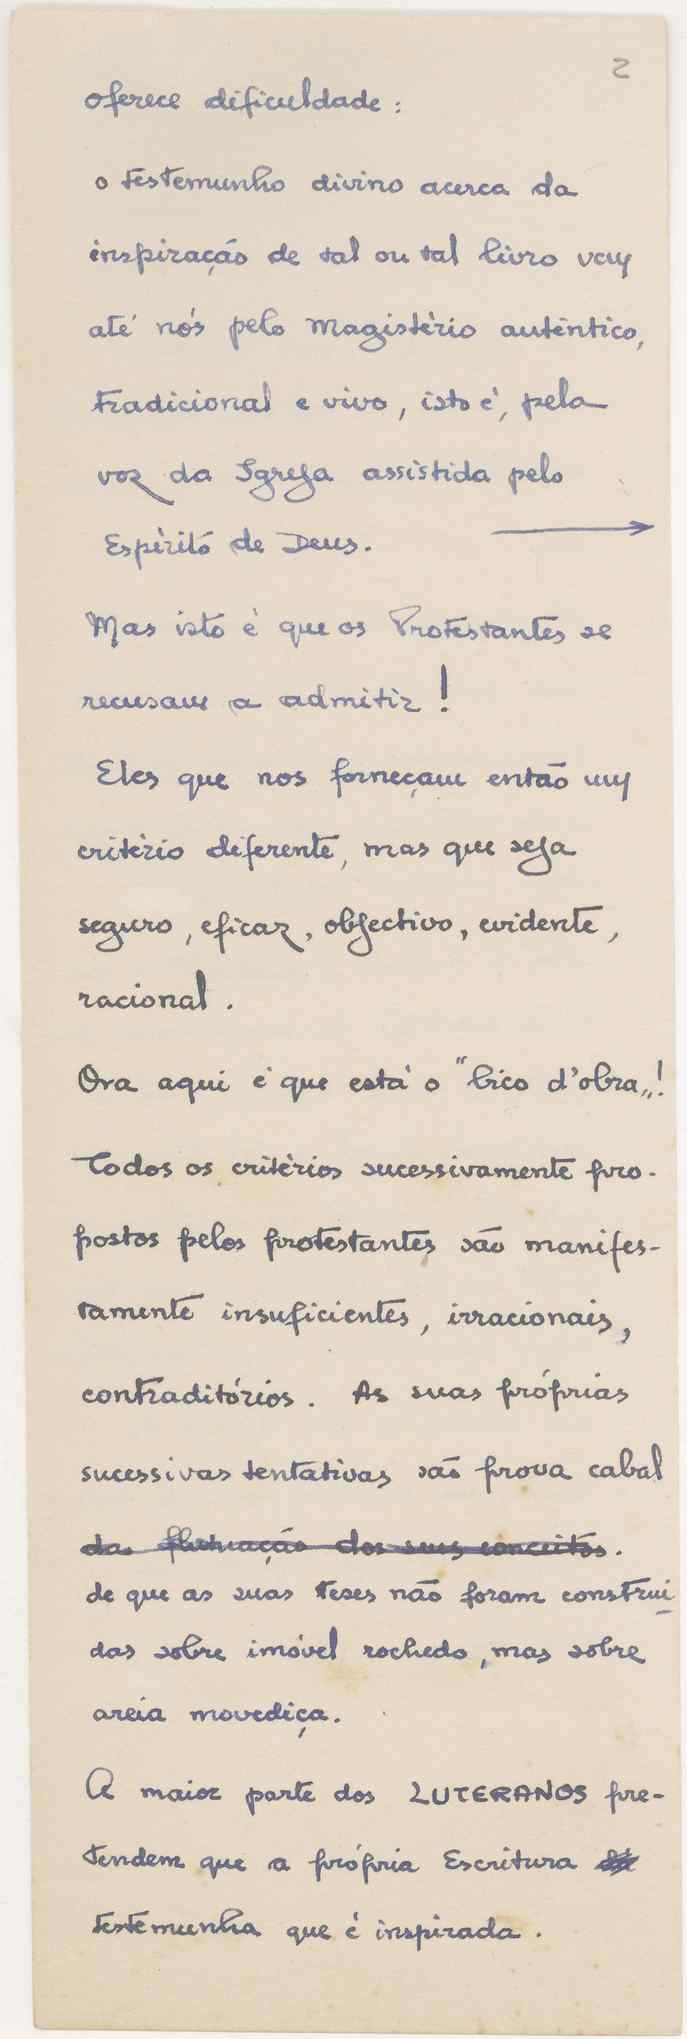 2
oferece dificuldade:
o testemunho divino acerca da
inspiração de tal ou tal livro vem
até nós pelo magistério autêntico,
tradicional e vivo, isto é, pela
voz da Igreja assistida pelo
Espírito de Deus.
Mas isto é que os Protestantes se
recusam a admitir!
Eles que nos forneçam então um
critério diferente, mas que seja
seguro, eficaz, objectivo, evidente,
racional.
Ora aqui é que está o "bico d'obra"!
Todos os critérios sucessivamente pro-
postos pelos protestantes são manifes-
tamente insuficientes, irracionais,
contraditórios. As suas próprias
sucessivas tentativas são prova cabal
da flutuação dos seus conceitos.
de que as suas teses não foram construi
das sobre imóvel rochedo, mas sobre
areia movediça.
A maior parte dos LUTERANOS pre-
tendem que a própria Escritura
testemunha que é inspirada.